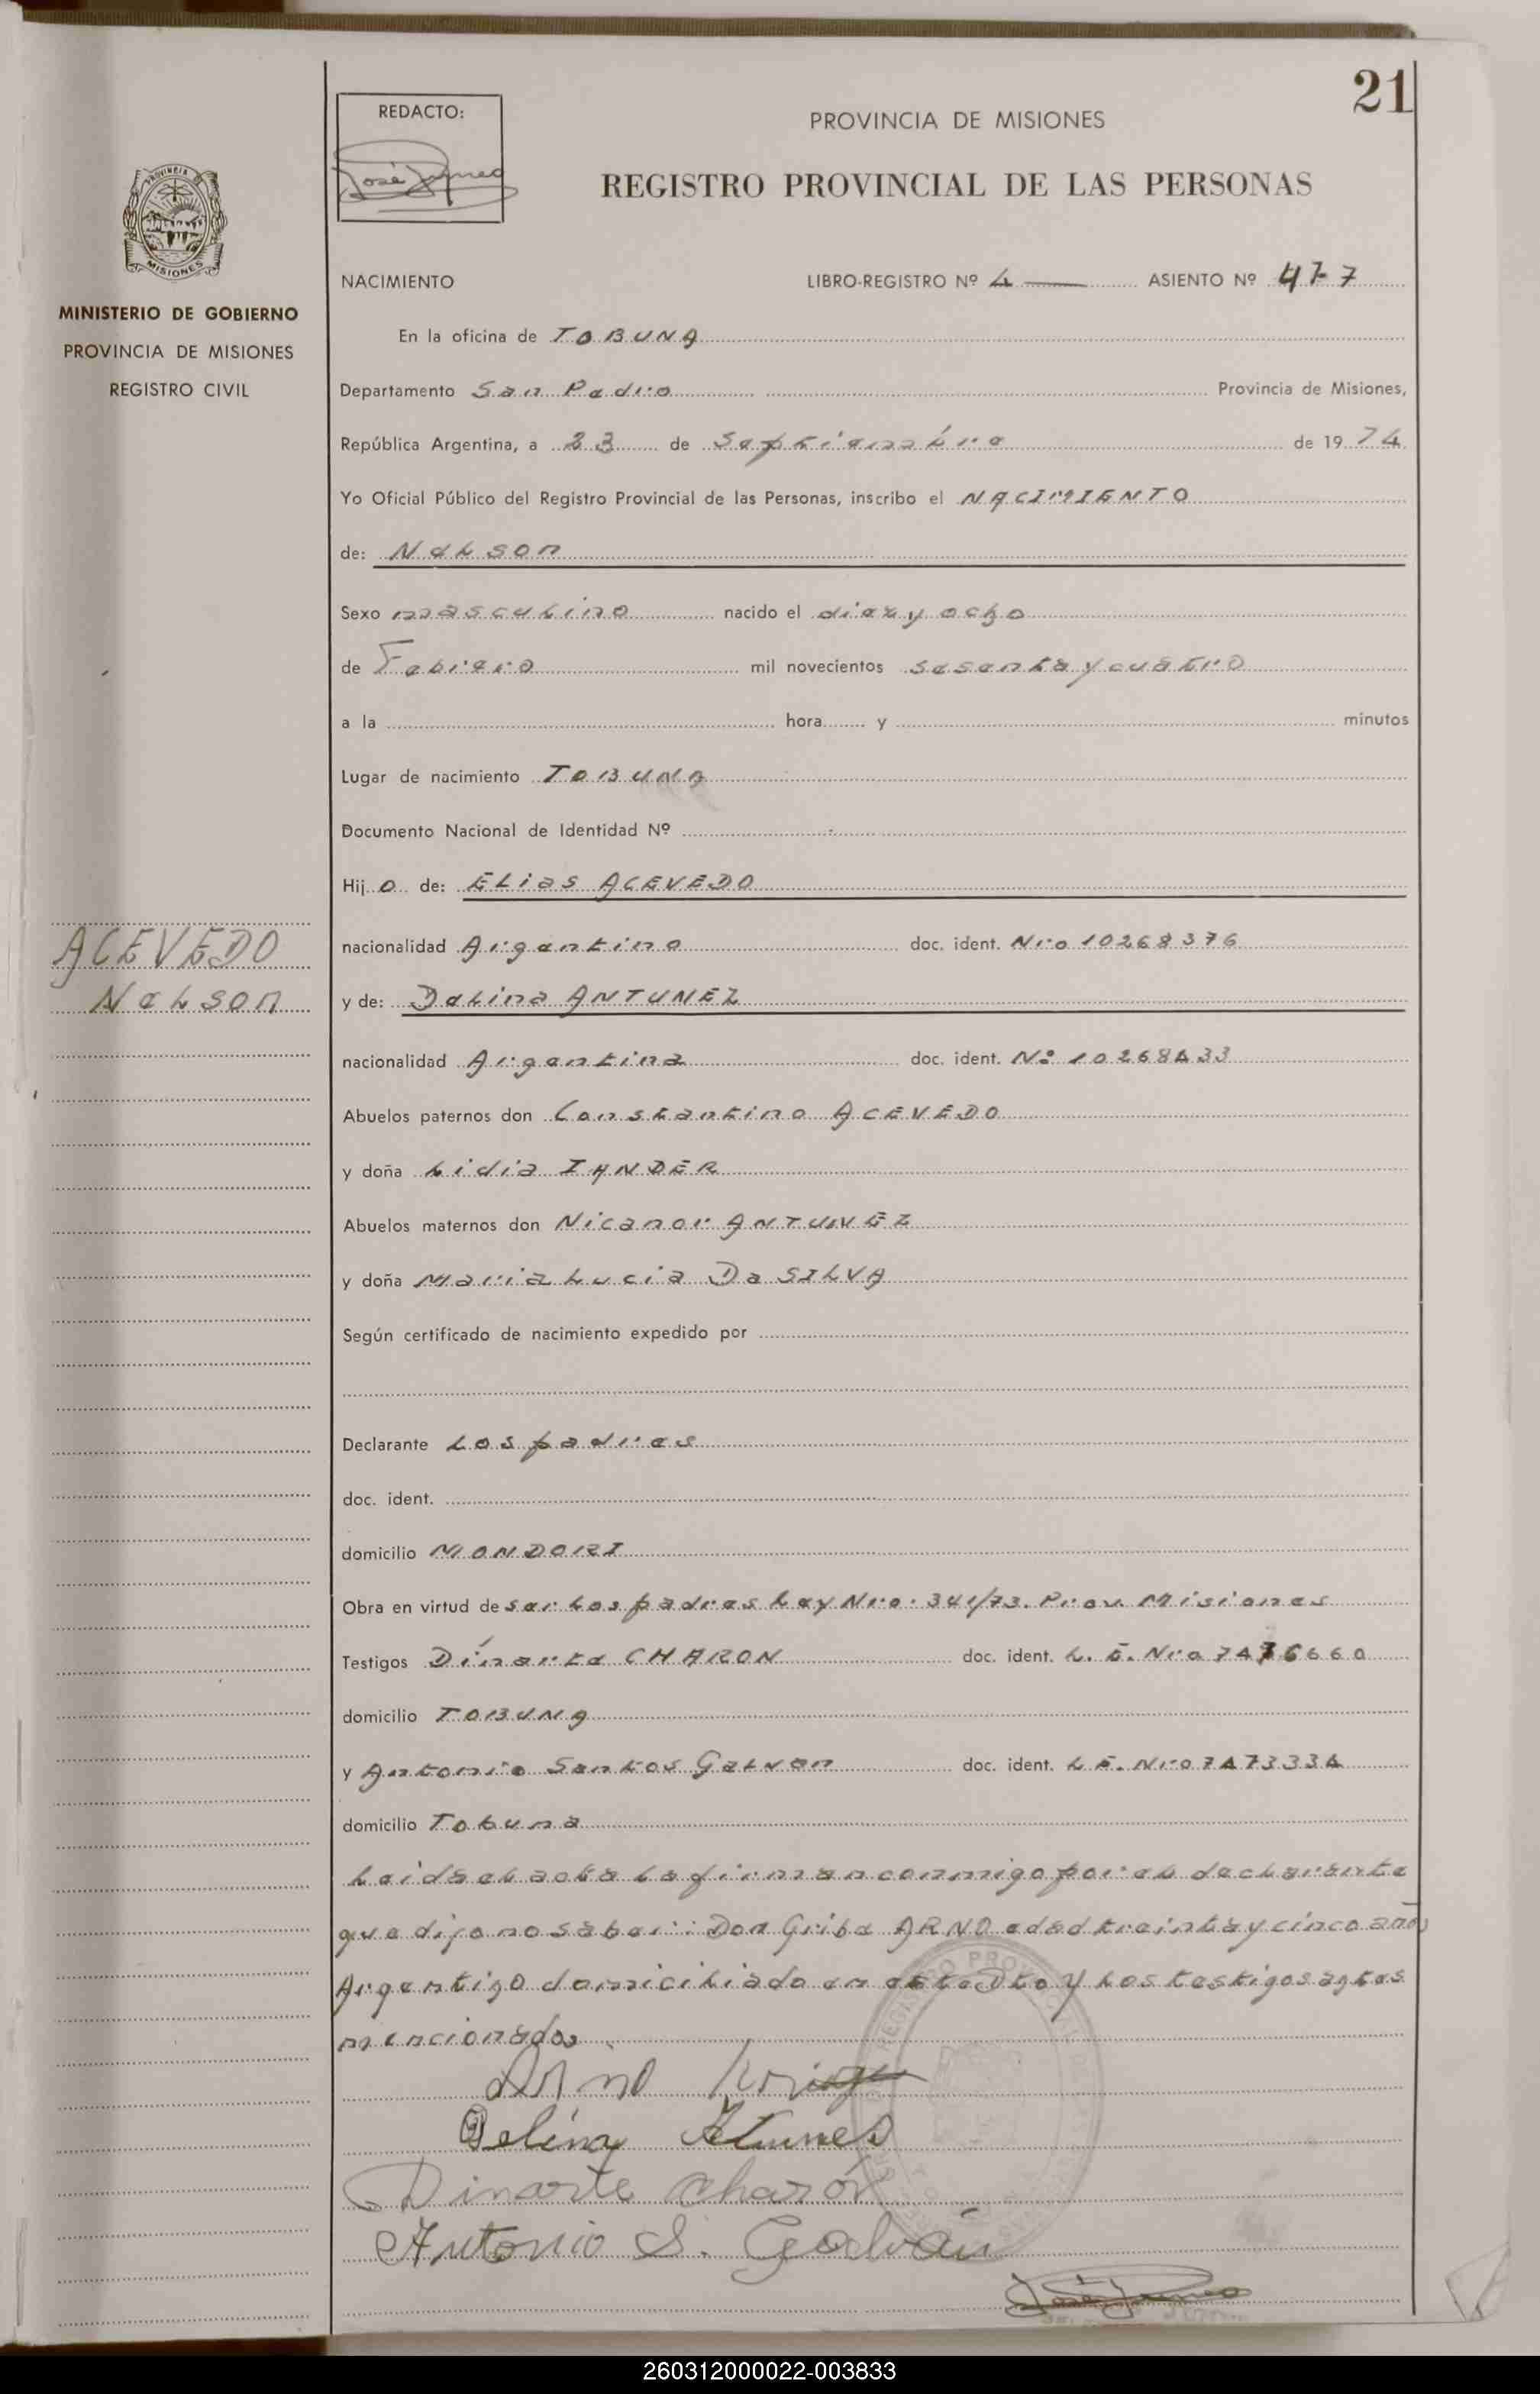 21
REDACTO:
PROVINCIA DE MISIONES
REGISTRO PROVINCIAL DE LAS PERSONAS
PROVINCIA DE
MISIONES
MINISTERIO DE GOBIERNO
PROVINCIA DE MISIONES
REGISTRO CIVIL
NACIMIENTO LIBRO-REGISTRO Nº 4 ASIENTO Nº 477
En la oficina de TOBUNA
Departamento San Pedro Provincia de Misiones,
República Argentina, a 23 de Septiembre de 1974
Yo Oficial Público del Registro Provincial de las Personas, inscribo el NACIMIENTO
de: Nelson
Sexo masculino nacido el diez y ocho
de Febrero mil novecientos sesenta y cuatro
a la hora y minutos
Lugar de nacimiento TOBUNA
Documento Nacional de Identidad Nº
Hijo de: ELias ACEVEDO
ACEVEDO
Nelson
nacionalidad Argentino doc. ident. Nro 10268376
y de: Delina ANTUNEZ
nacionalidad Argentina doc. ident. Nº 10268433
Abuelos paternos don Constantino ACEVEDO
y doña Lidia IANDER
Abuelos maternos don Nicanor ANTUNEZ
y doña Maria Lucia Da SILVA
Según certificado de nacimiento expedido por
Declarante Los padres
doc. ident.
domicilio MONDORI
Obra en virtud de ser Los padres Ley Nro. 341/73. Prov. Misiones
Testigos Dinarte CHARON doc. ident. L. E. Nro 7476660
domicilio TOBUNA
y Antonio Santos Galvan doc. ident. L E. Nro 7473334
domicilio Tobuna
Leida el acta La firman conmigo por el declarante
que dijo no saber: Don Griba ARNO edad treinta y cinco años
Argentino domiciliado en este Dto y Los testigos antes
mencionados
Arno
Delina Atunes
Dinarte Charón
Antonio S. Galván
260312000022-003833